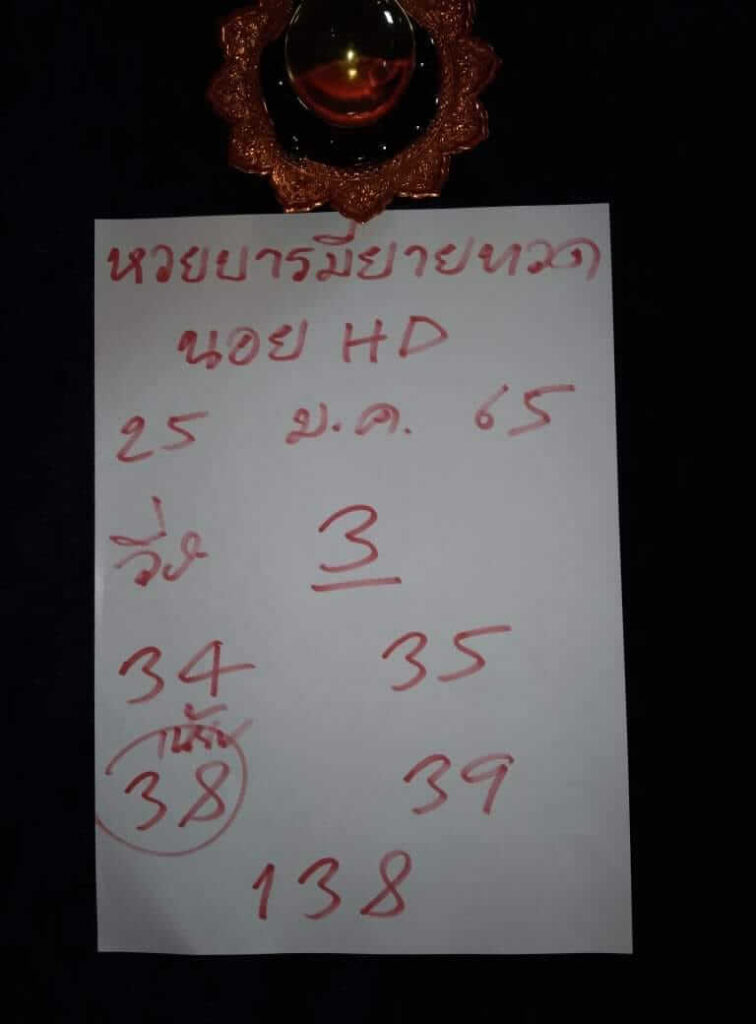 หวยบารมียายทวด
นอย HD
25 ม.ค. 65
วิ่ง 3
34 35
เน้น
38 39
138